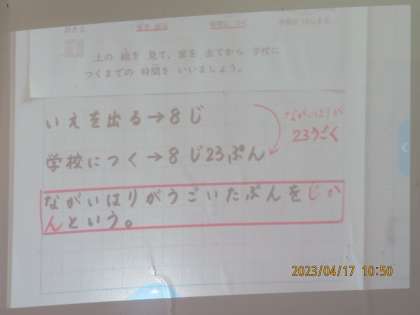 上の 絵を 見て、家を 出てから 学校に
つくまでの 時間を いいましょう。
いえを出る→8じ
学校につく→8じ23ぷん
ながいはりが
23うごく
ながいはりがうごいたぶんをじか
んという。
2023/04/17 10:50